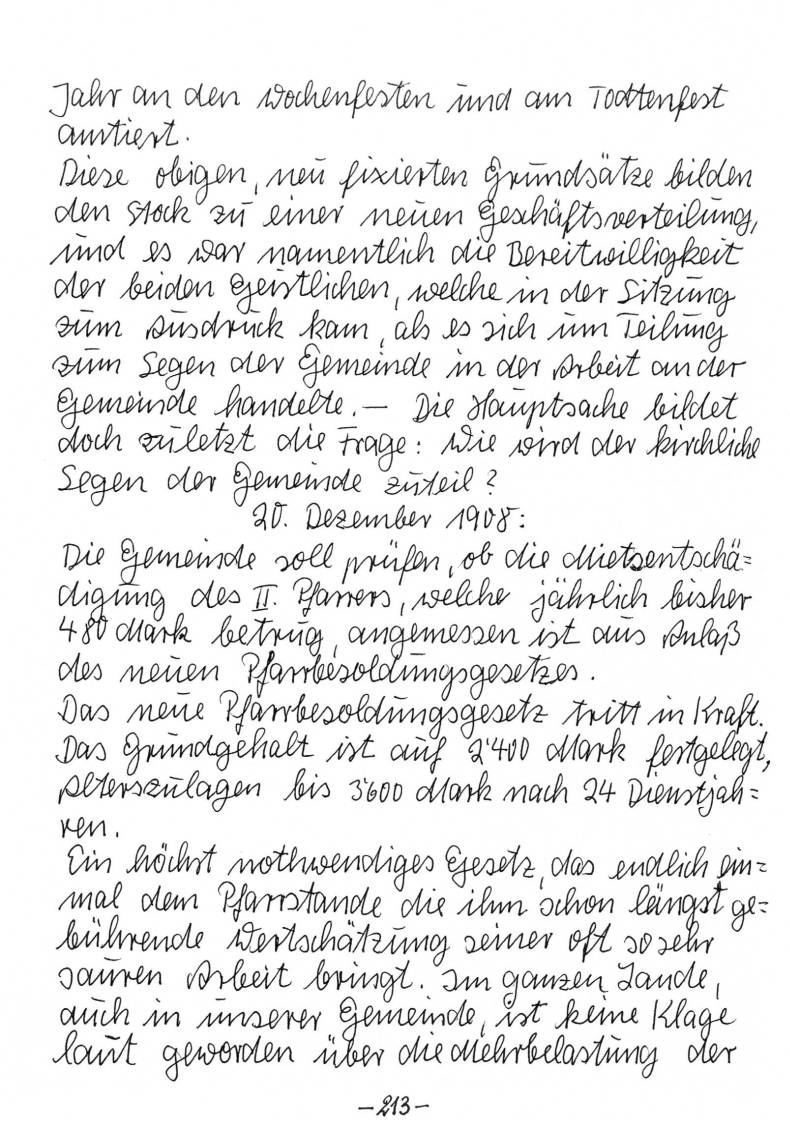 Jahr an den Wochenfesten und am Todtenfest
amtiert.
Diese obigen, neu fixierten Grundsätze bilden
den Stock zu einer neuen Geschäftsverteilung,
und es war namentlich die Bereitwilligkeit
der beiden Geistlichen, welche in der Sitzung
zum Ausdruck kam, als es sich um Teilung
zum Segen der Gemeinde in der Arbeit an der
Gemeinde handelte. — Die Hauptsache bildet
doch zuletzt die Frage: Wie wird der kirchliche
Segen der Gemeinde zuteil?
20. Dezember 1908:
Die Gemeinde soll prüfen, ob die Mietsentschä=
digung des II. Pfarrers, welche jährlich bisher
480 Mark betrug, angemessen ist aus Anlaß
des neuen Pfarrbesoldungsgesetzes.
Das neue Pfarrbesoldungsgesetz tritt in Kraft.
Das Grundgehalt ist auf 2'400 Mark festgelegt,
Alterszulagen bis 3'600 Mark nach 24 Dienstjah=
ren.
Ein höchst nothwendiges Gesetz, das endlich ein=
mal dem Pfarrstande die ihm schon längst ge=
bührende Wertschätzung seiner oft so sehr
sauren Arbeit bringt. Im ganzen Lande,
auch in unserer Gemeinde, ist keine Klage
laut geworden über die Mehrbelastung der
-213-